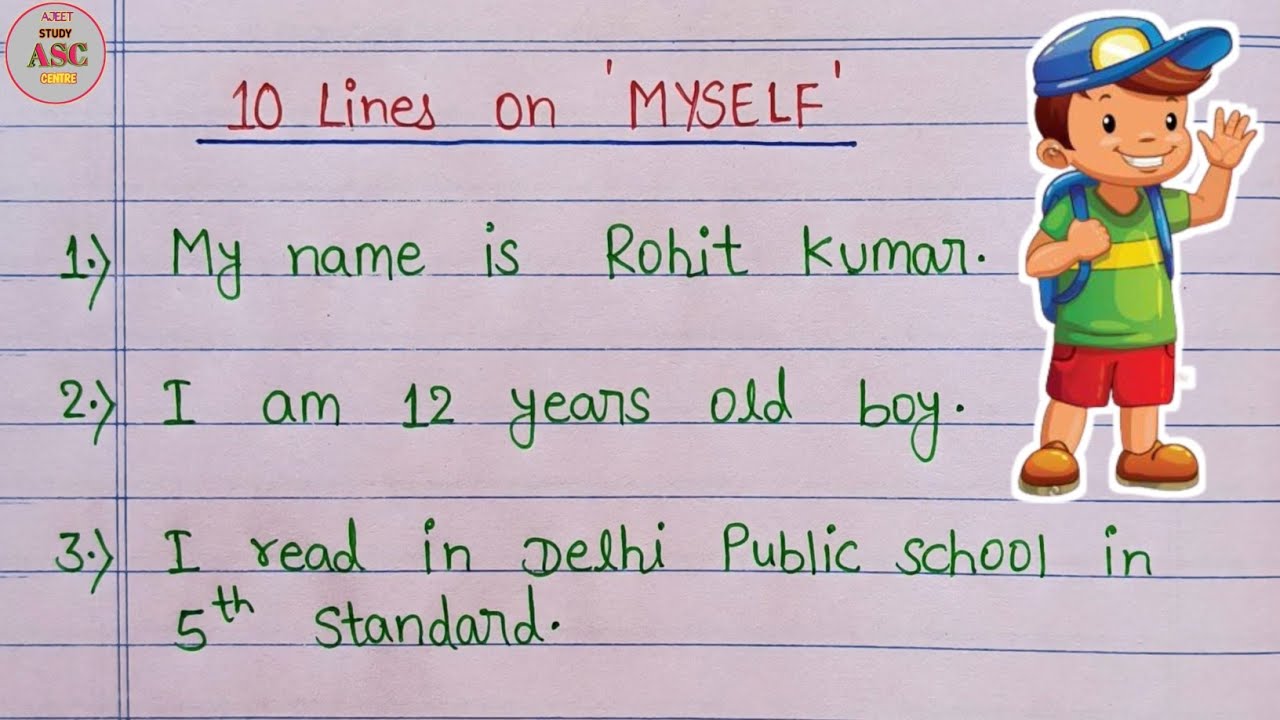 AJEET
STUDY
ASC
CENTRE
10 Lines on 'MYSELF'
1.) My name is Rohit Kumar.
2.) I am 12 years old boy.
3.) I read in Delhi Public School in
5th Standard.